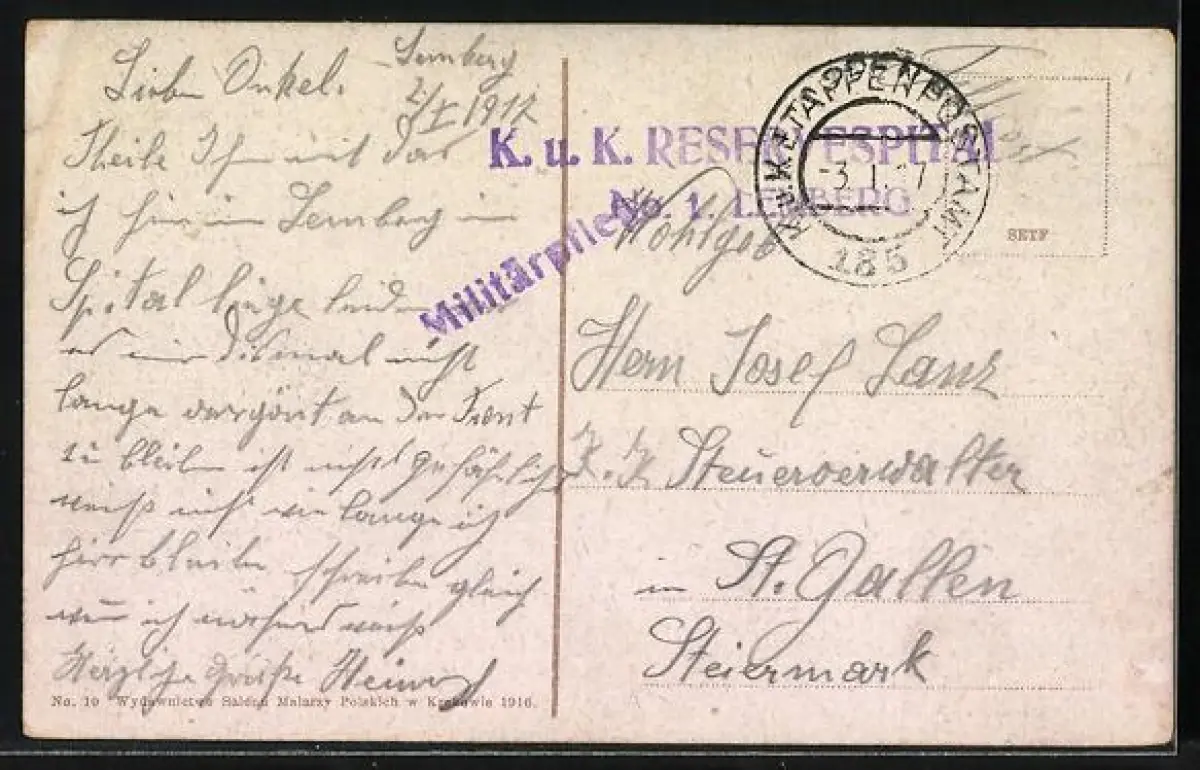 Lieber Onkel.
Lemberg
2/I 1917
Theile Ihn mit das
ich hier in Lemberg im
Spital liege leider
es mir diesmal nicht
lange vergönt an der Front
zu bleiben ist nicht gefährlich
weiß nicht wie lange ich
hier bleibe schreibe gleich
wen ich näheres weiß
Herzliche Grüße Heinrich
No. 10 Wydawnictwo Salonu Malarzy Polskich w Krakowie 1916.
K. u. K. RESERVESPITAL
No. 1. LEMBERG
Militärpflege
K.u.K. ETAPPENPOSTAMT
3.I.17
185
Wohlgeb
Herrn Josef Lanz
K. K. Steuerverwalter
in St. Gallen
Steiermark